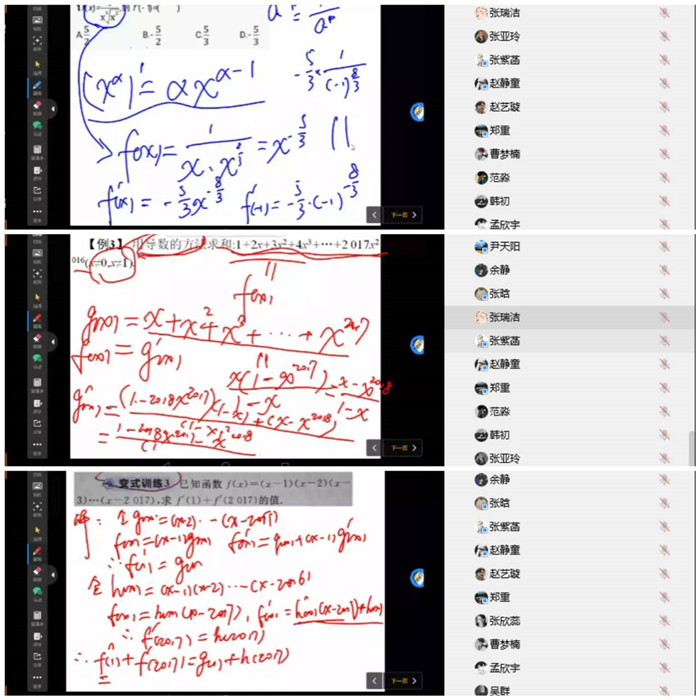 A.5/2 B.-5/2 C.5/3 D.-5/3
(x^α)' = αx^(α-1)
-5/3 × 1/(-1)^(8/3)
f(x) = 1/(x·x^(2/3)) = x^(-5/3)
f'(x) = -5/3 x^(-8/3) f'(-1) = -5/3·(-1)^(-8/3)
下一页
张瑞洁
张亚玲
张紫菡
赵静童
赵艺璇
郑重
曹梦楠
范淼
韩初
孟欣宇
【例3】用导数的方法求和:1+2x+3x²+4x³+…+2 017x²
016(x≠0,x≠1).
f(x)
g(x) = x+x²+x³+…+x^2017
f(x) = g'(x)
x(1-x^2017)/(1-x) = (x-x^2018)/(1-x)
g'(x) = (1-2018x^2017)(1-x)+(x-x^2018)
下一页
尹天阳
余静
张晗
张瑞洁
张紫菡
赵静童
郑重
范淼
韩初
张亚玲
变式训练3 已知函数 f(x)=(x-1)(x-2)(x-
3)…(x-2 017),求 f'(1)+f'(2 017)的值.
解:令g(x)=(x-2)…(x-2017)
f(x)=(x-1)g(x) f'(x)=g(x)+(x-1)g'(x)
∴f'(1)=g(1)
令h(x)=(x-1)(x-2)…(x-2016)
f(x)=h(x)(x-2017), f'(x)=h'(x)(x-2017)+h(x)
∴f'(2017)=h(2017)
∴f'(1)+f'(2017)=g(1)+h(2017)
=
下一页
余静
张晗
张紫菡
赵静童
赵艺璇
郑重
张欣蕊
曹梦楠
孟欣宇
吴群